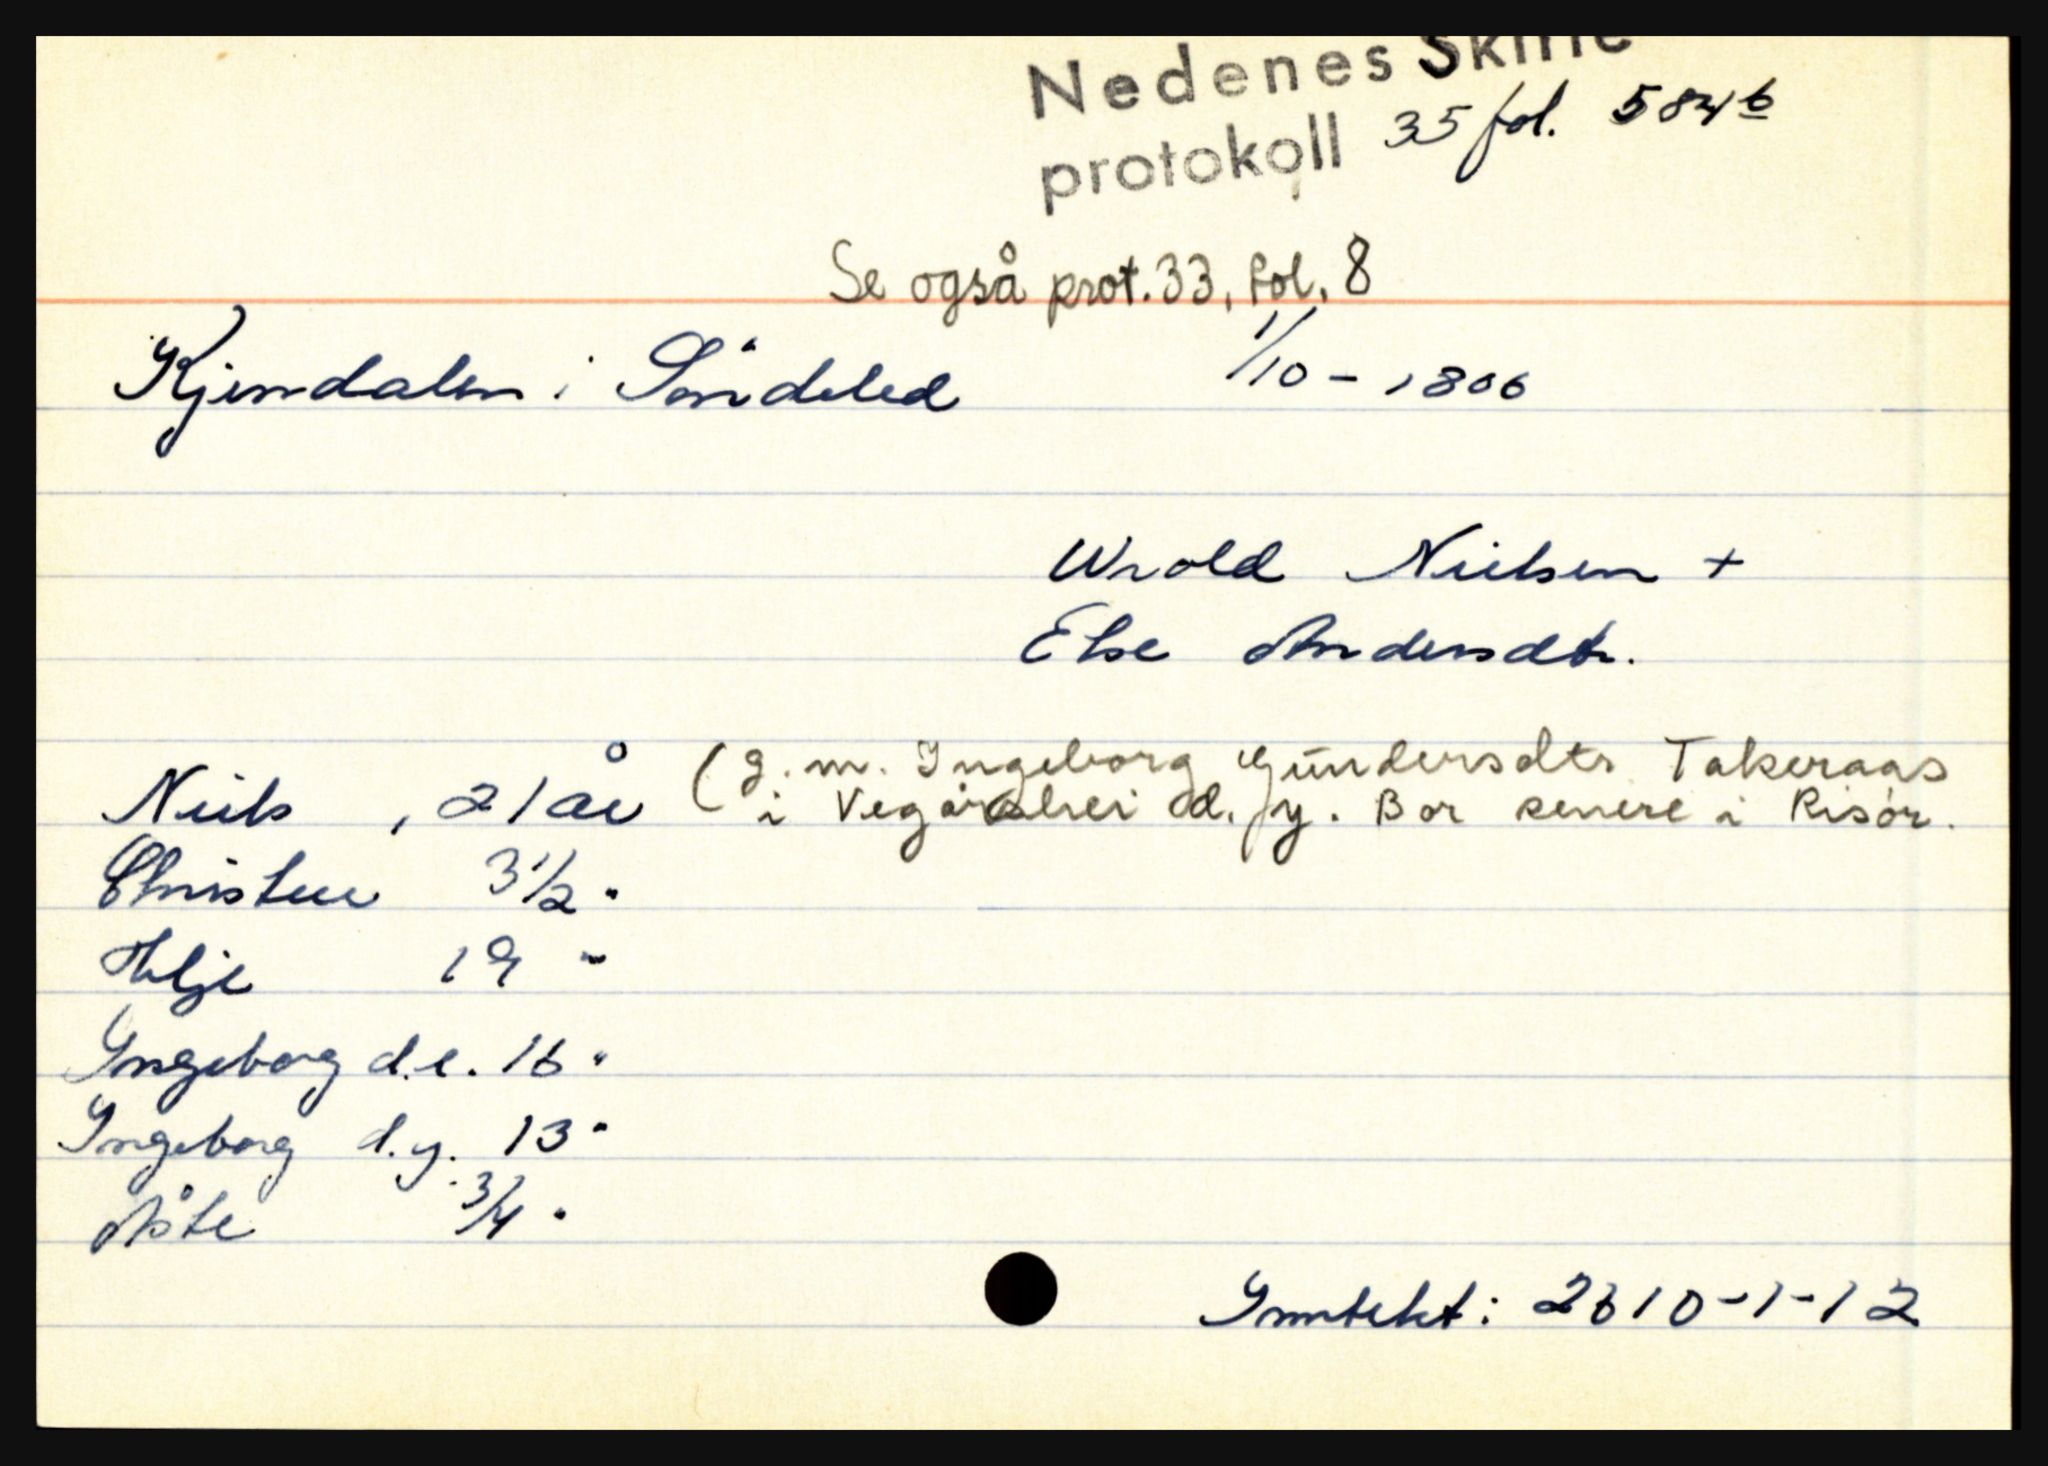 Nedenes Skifte
protokoll 35 fol. 584b
Se også prot. 33, fol. 8
Kjendalen i Söndeled 1/10 - 1806
Wrold Nielsen +
Else Andersdtr.
Niels , 21 år (g. m. Ingeborg Gundersdtr Takeraas
i Vegårshei d. y. Bor senere i Risör.
Christen 3 1/2 "
Aslje 19 "
Ingeborg d.e. 16 "
Ingeborg d.y. 13 "
Åste 3/4 "
Inntekt: 2610-1-12